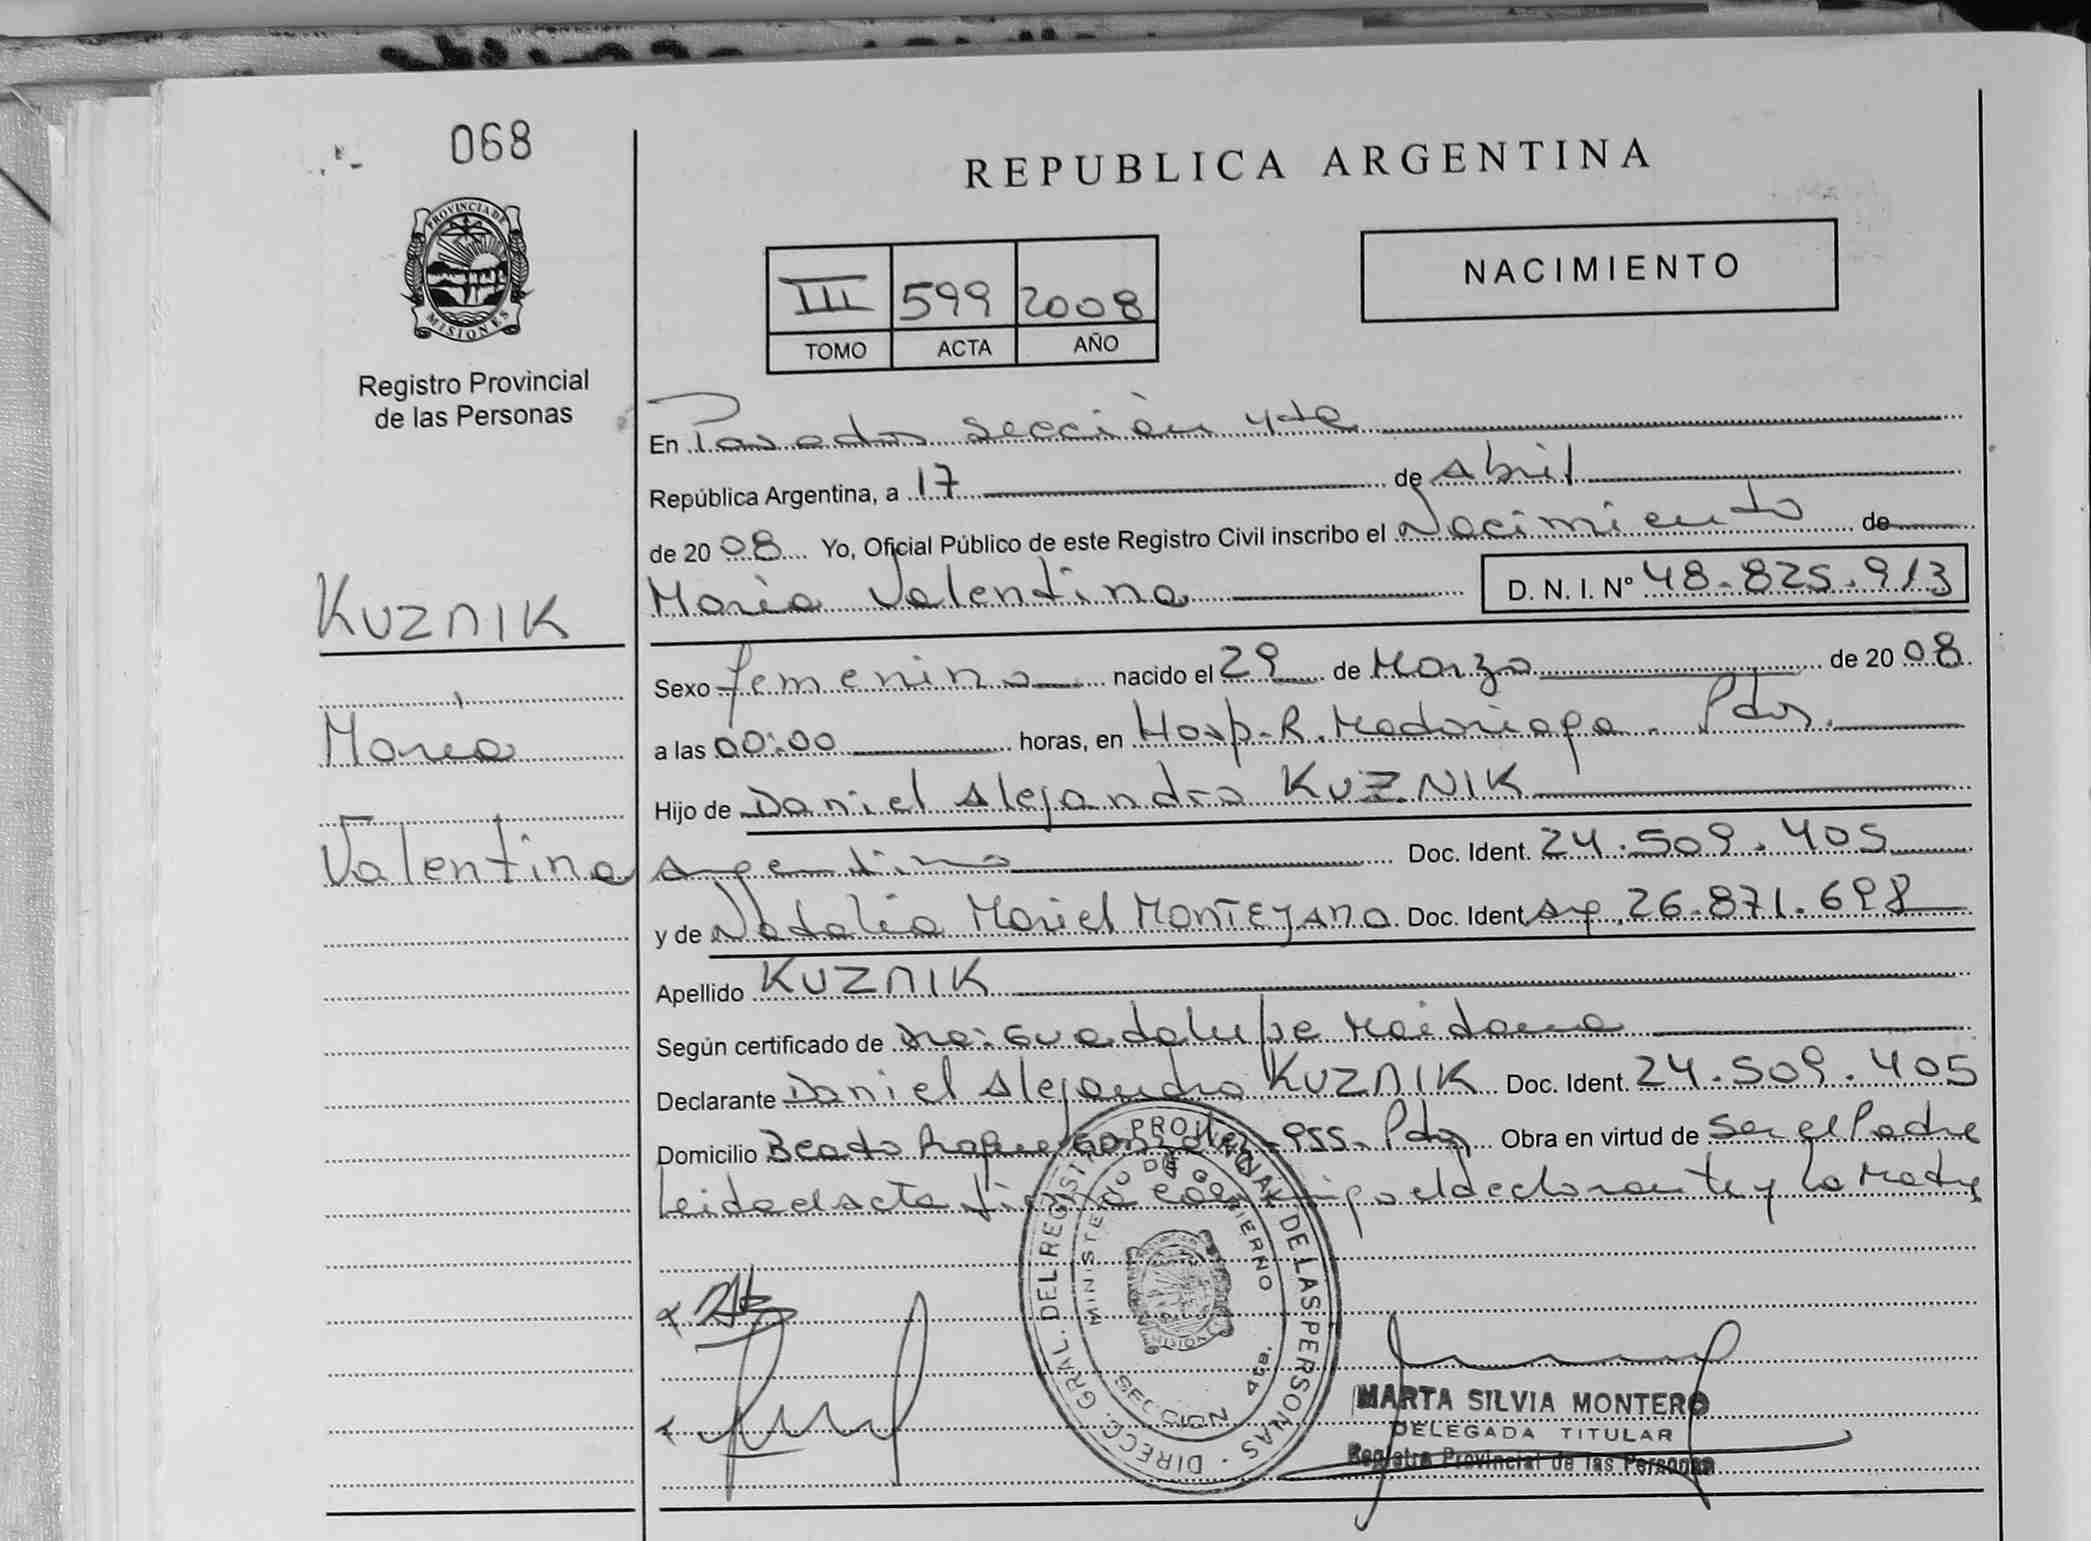 068
PROVINCIA DE
MISIONES
Registro Provincial
de las Personas
REPUBLICA ARGENTINA
NACIMIENTO
III 599 2008
TOMO ACTA AÑO
En Posadas sección 4ta
República Argentina, a 17 de Abril
de 2008 Yo, Oficial Público de este Registro Civil inscribo el Nacimiento de
María Valentina D. N. I. Nº 48.825.913
KUZNIK
María
Valentina
Sexo femenino nacido el 29 de Marzo de 2008
a las 00:00 horas, en Hosp. R. Madariaga - Pdas.
Hijo de Daniel Alejandro KUZNIK
Argentino Doc. Ident. 24.509.405
y de Natalia Mariel MONTEJANO Doc. Ident. 26.871.698
Apellido KUZNIK
Según certificado de Guadalupe Maidana
Declarante Daniel Alejandro KUZNIK Doc. Ident. 24.509.405
Domicilio Beato Roque González 955 - Pdas Obra en virtud de Ser el Padre
Leida el acta firma conmigo el declarante y la Madre
DIRECC. GRAL. DEL REGISTRO PROVINCIAL DE LAS PERSONAS
MINISTERIO DE GOBIERNO
SECCION 4ta.
MARTA SILVIA MONTERO
DELEGADA TITULAR
Registro Provincial de las Personas